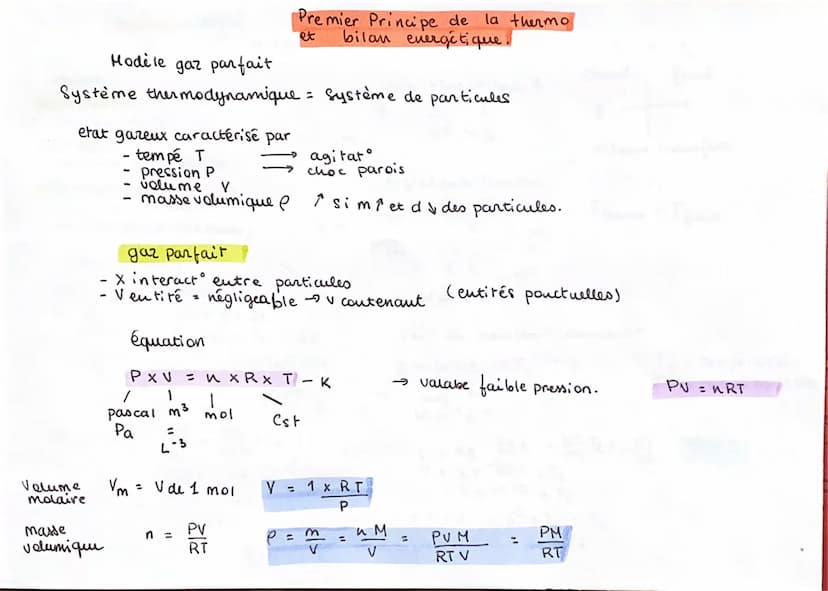 Premier Principe de la thermo
et bilan energétique.
Modèle gaz parfait
Système thermodynamique = Système de particules
etat gazeux caractérisé par
- tempé T → agitat°
- pression P → choc parois
- volume V
- masse volumique ρ ↗ si m ↗ et d ↘ des particules.
gaz parfait
- X interact° entre particules
- V entité = négligeable → V contenant (entités ponctuelles)
Équation
P x V = n x R x T - K → valabe faible pression. PV = nRT
pascal m³ mol Cst
Pa =
L⁻³
Volume molaire Vm = V de 1 mol V = 1 x RT / P
masse volumique n = PV / RT ρ = m / V = n M / V = PVM / RTV = PM / RT